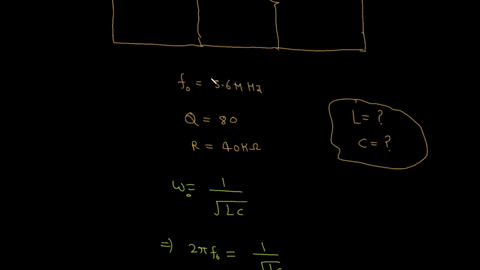 f₀ = 5.6M Hz
Q = 80
R = 40KΩ
L = ?
C = ?
ω₀ = 1/√LC
⇒ 2πf₀ = 1/√LC